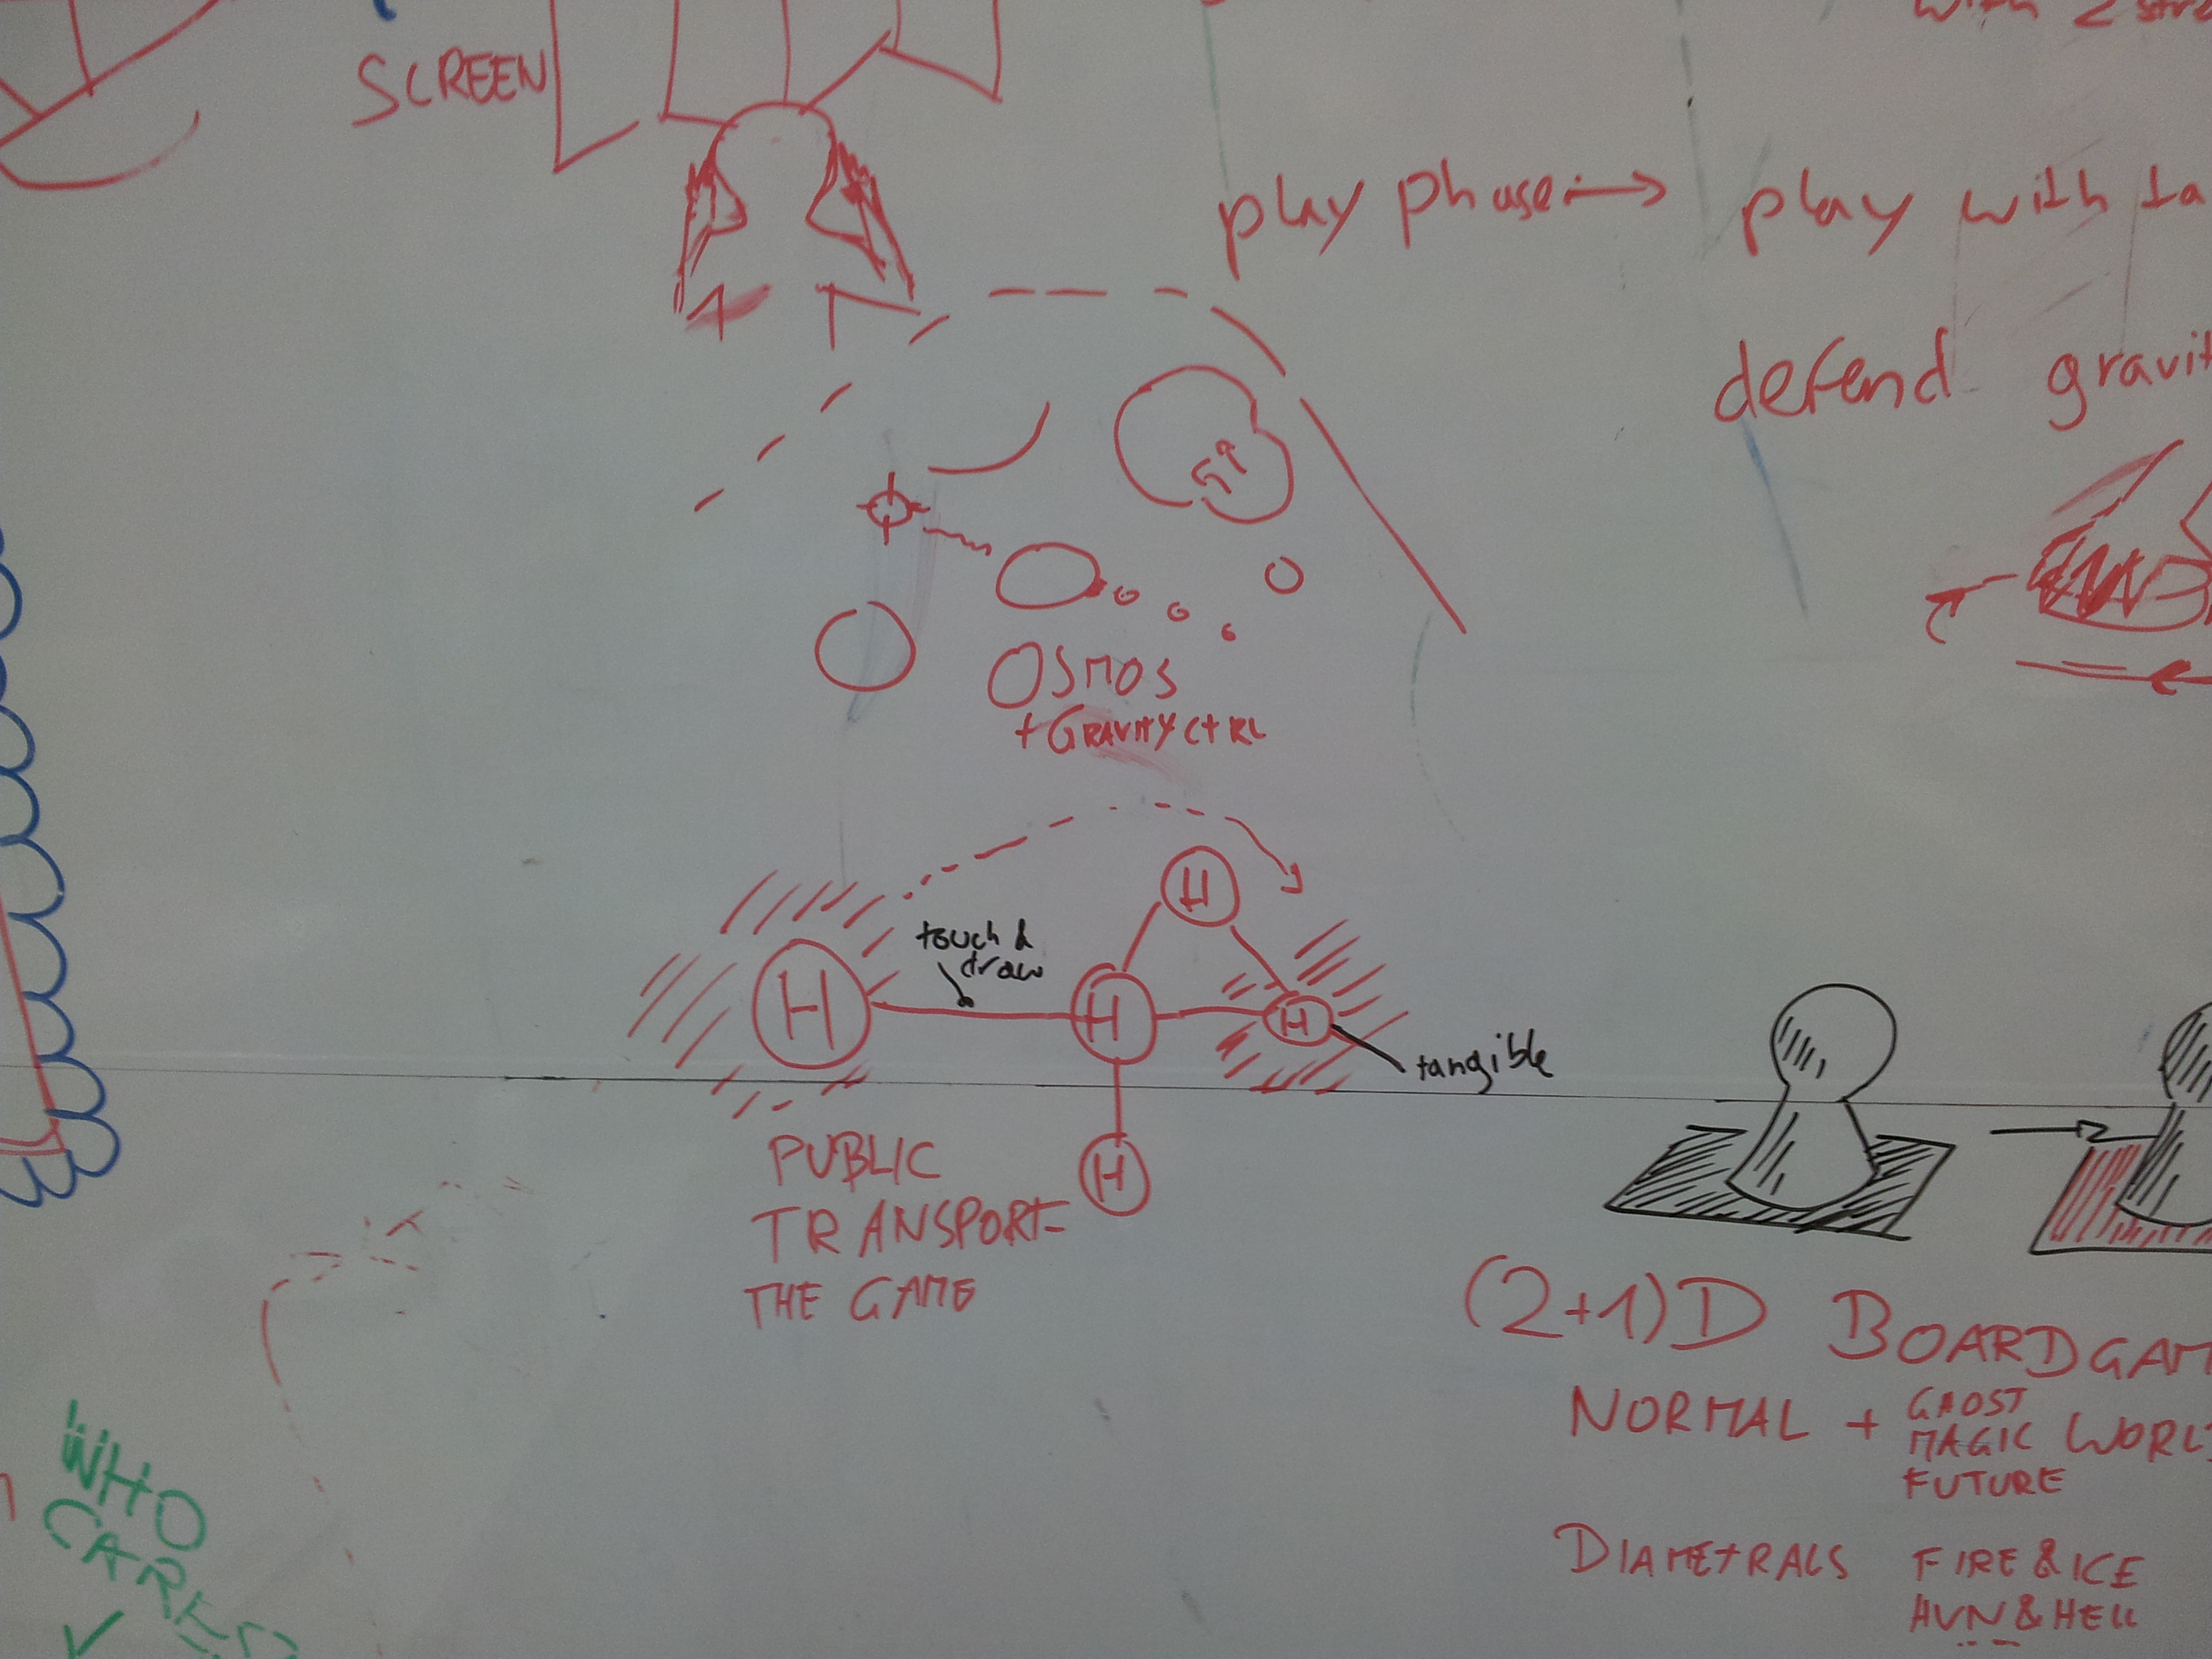 SCREEN
play phase → play with ta
defend gravit
OSMOS
+ GRAVITY CTRL
H
touch &
draw
H
H
H
tangible
H
PUBLIC
TRANSPORT-
THE GAME
(2+1)D BOARDGAM
NORMAL + GHOST
MAGIC WORL
FUTURE
DIAMETRALS FIRE & ICE
HVN & HELL
WHO
CARES